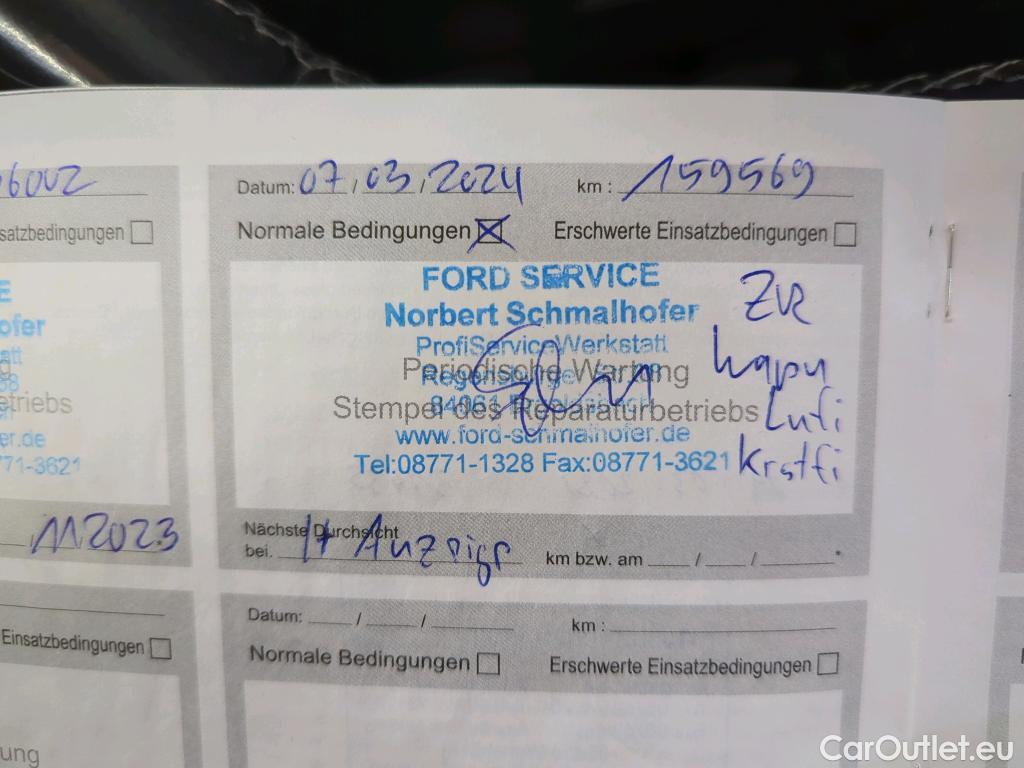 6002
satzbedingungen
E
ofer
att
58
etriebs
er.de
771-3621
112023
Einsatzbedingungen
ung
Datum: 07 / 03 / 2024 km : 159569
Normale Bedingungen Erschwerte Einsatzbedingungen
FORD SERVICE
Norbert Schmalhofer
ProfiServiceWerkstatt
Periodische Wartung
Stempel des Reparaturbetriebs
www.ford-schmalhofer.de
Tel:08771-1328 Fax:08771-3621
ZR
Lufi
Krstfi
Nächste Durchsicht
bei. lt Anzeige km bzw. am / / *
Datum: / / km :
Normale Bedingungen Erschwerte Einsatzbedingungen
CarOutlet.eu